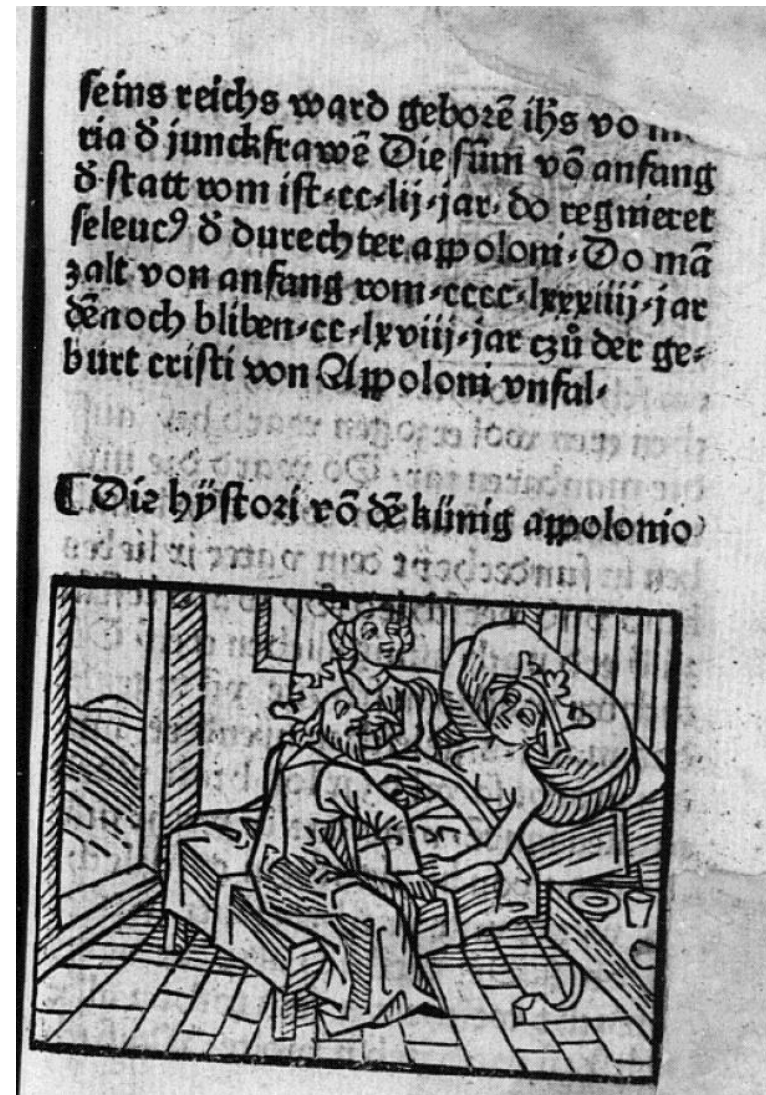 seins reichs ward geborē ihs vō
ria đ junckfrawē Die sūm vō anfang
đ statt rom ist·cc·lij·jar· do regnieret
seleucꝰ đ durechter appoloni· Do mā
zalt von anfang rom·cccc·lxxxiiij·jar
dēnoch bliben·cc·lxviij·jar czů der ge⸗
burt cristi von Appoloni vnfal·
¶ Die hÿstori vō dē künig appolonio